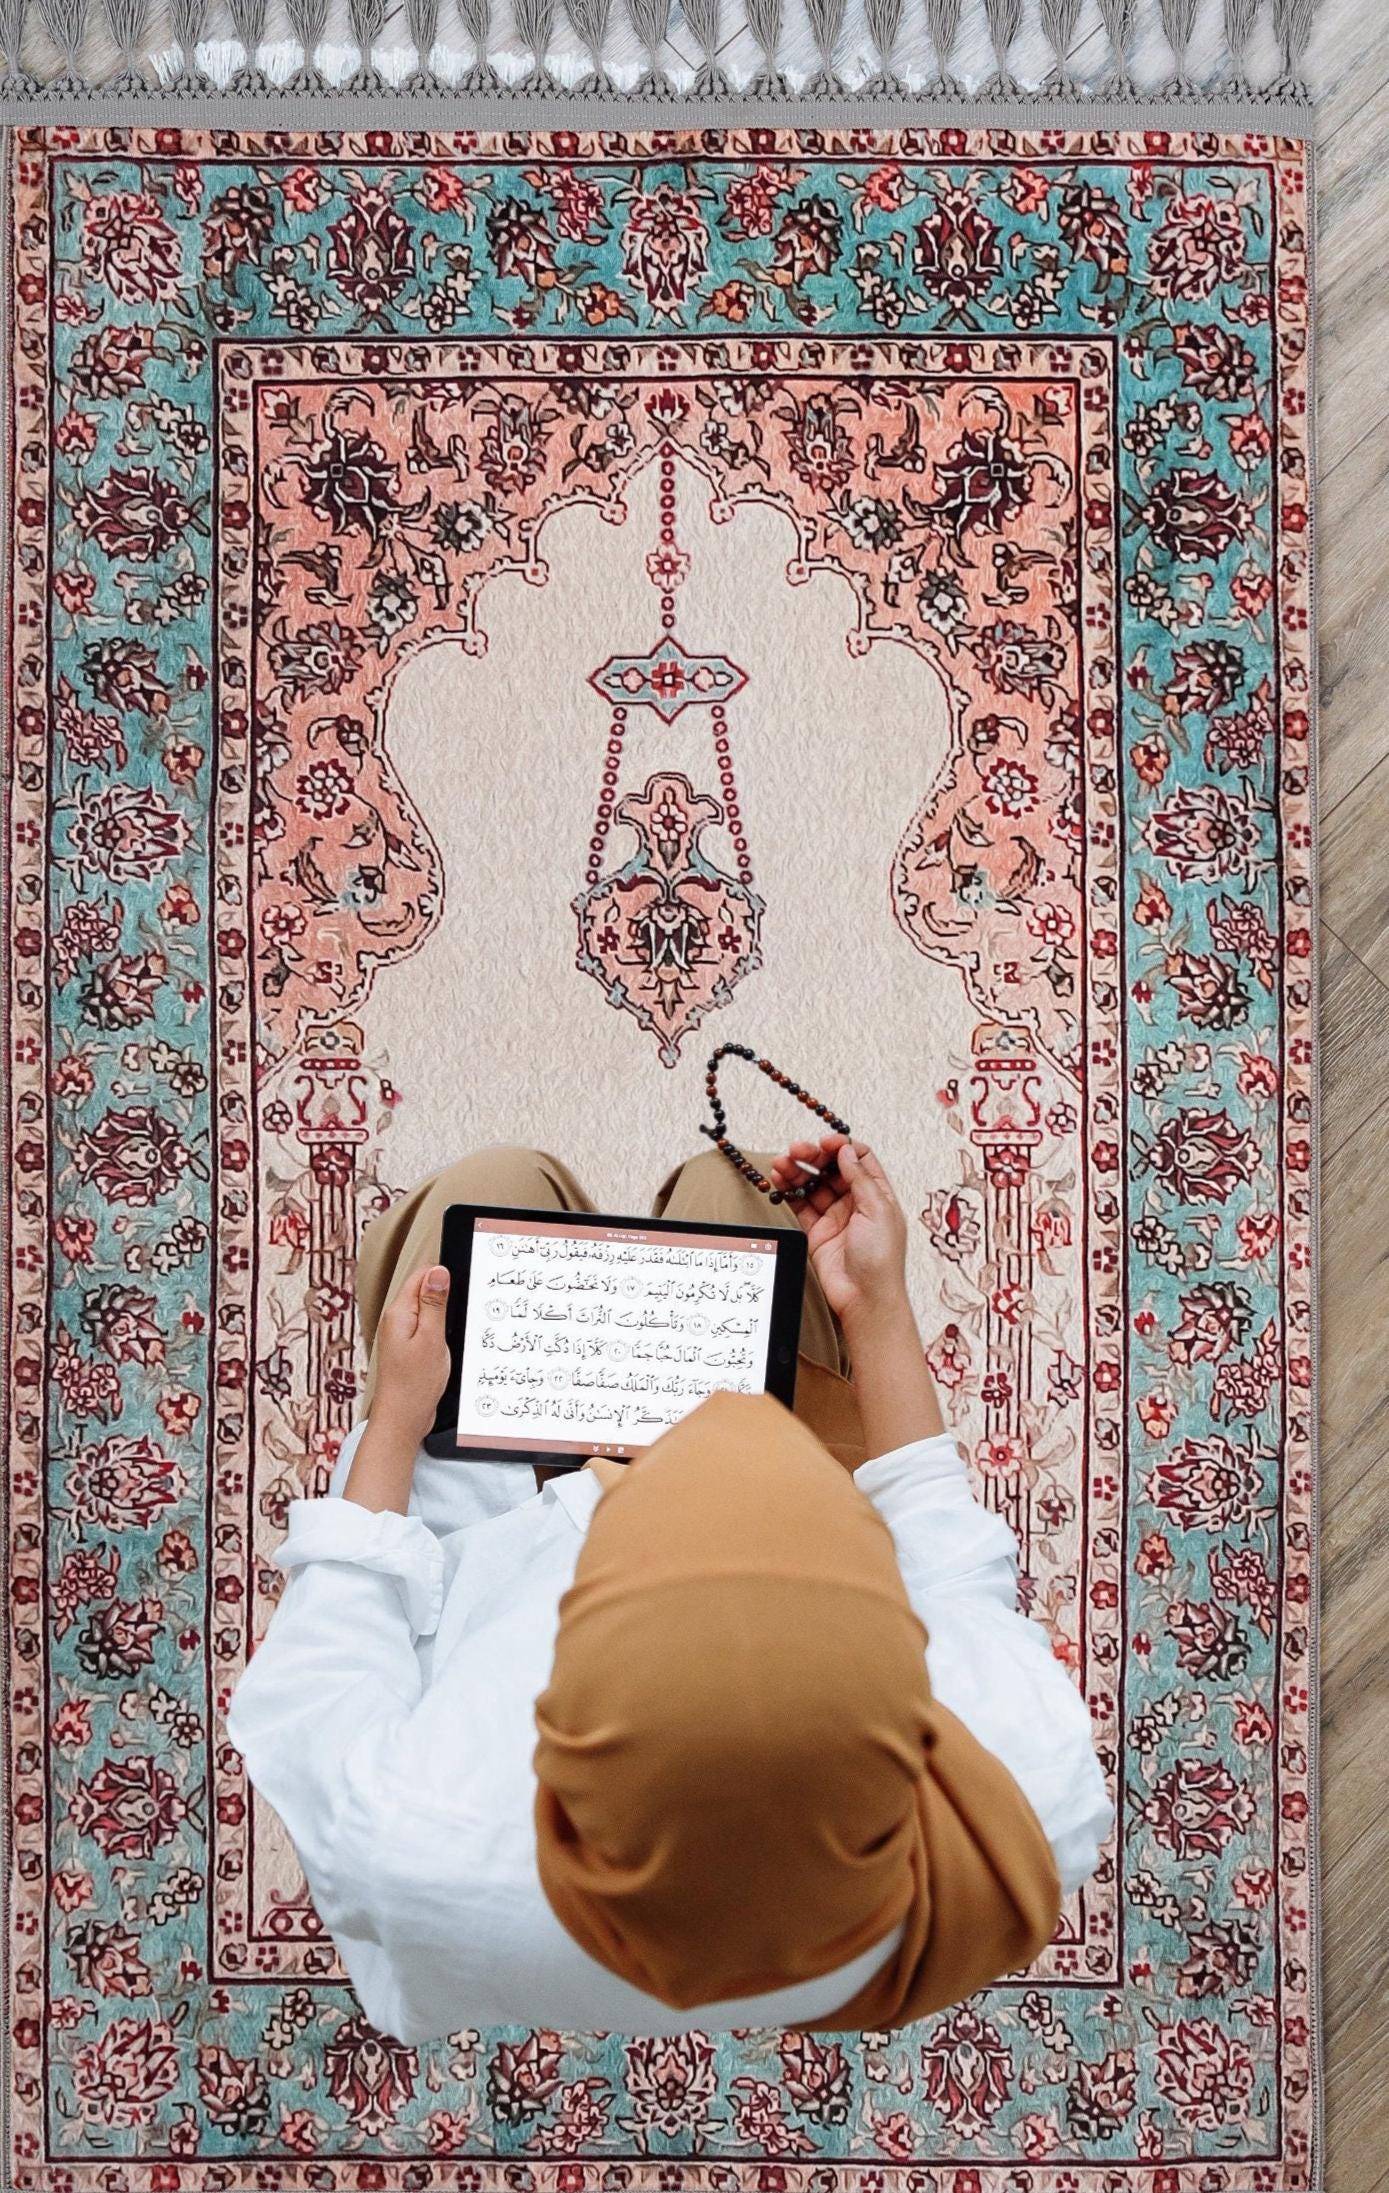 ١٥ وَأَمَّآ إِذَا مَا ٱبْتَلَىٰهُ فَقَدَرَ عَلَيْهِ رِزْقَهُۥ فَيَقُولُ رَبِّىٓ أَهَٰنَنِ ١٦
كَلَّا ۖ بَل لَّا تُكْرِمُونَ ٱلْيَتِيمَ ١٧ وَلَا تَحَٰٓضُّونَ عَلَىٰ طَعَامِ
ٱلْمِسْكِينِ ١٨ وَتَأْكُلُونَ ٱلتُّرَاثَ أَكْلًا لَّمًّا ١٩
وَتُحِبُّونَ ٱلْمَالَ حُبًّا جَمًّا ٢٠ كَلَّآ إِذَا دُكَّتِ ٱلْأَرْضُ دَكًّا
وَجَآءَ رَبُّكَ وَٱلْمَلَكُ صَفًّا صَفًّا ٢٢ وَجِا۟ىٓءَ يَوْمَئِذٍۭ
ٱلْإِنسَٰنُ وَأَنَّىٰ لَهُ ٱلذِّكْرَىٰ ٢٣